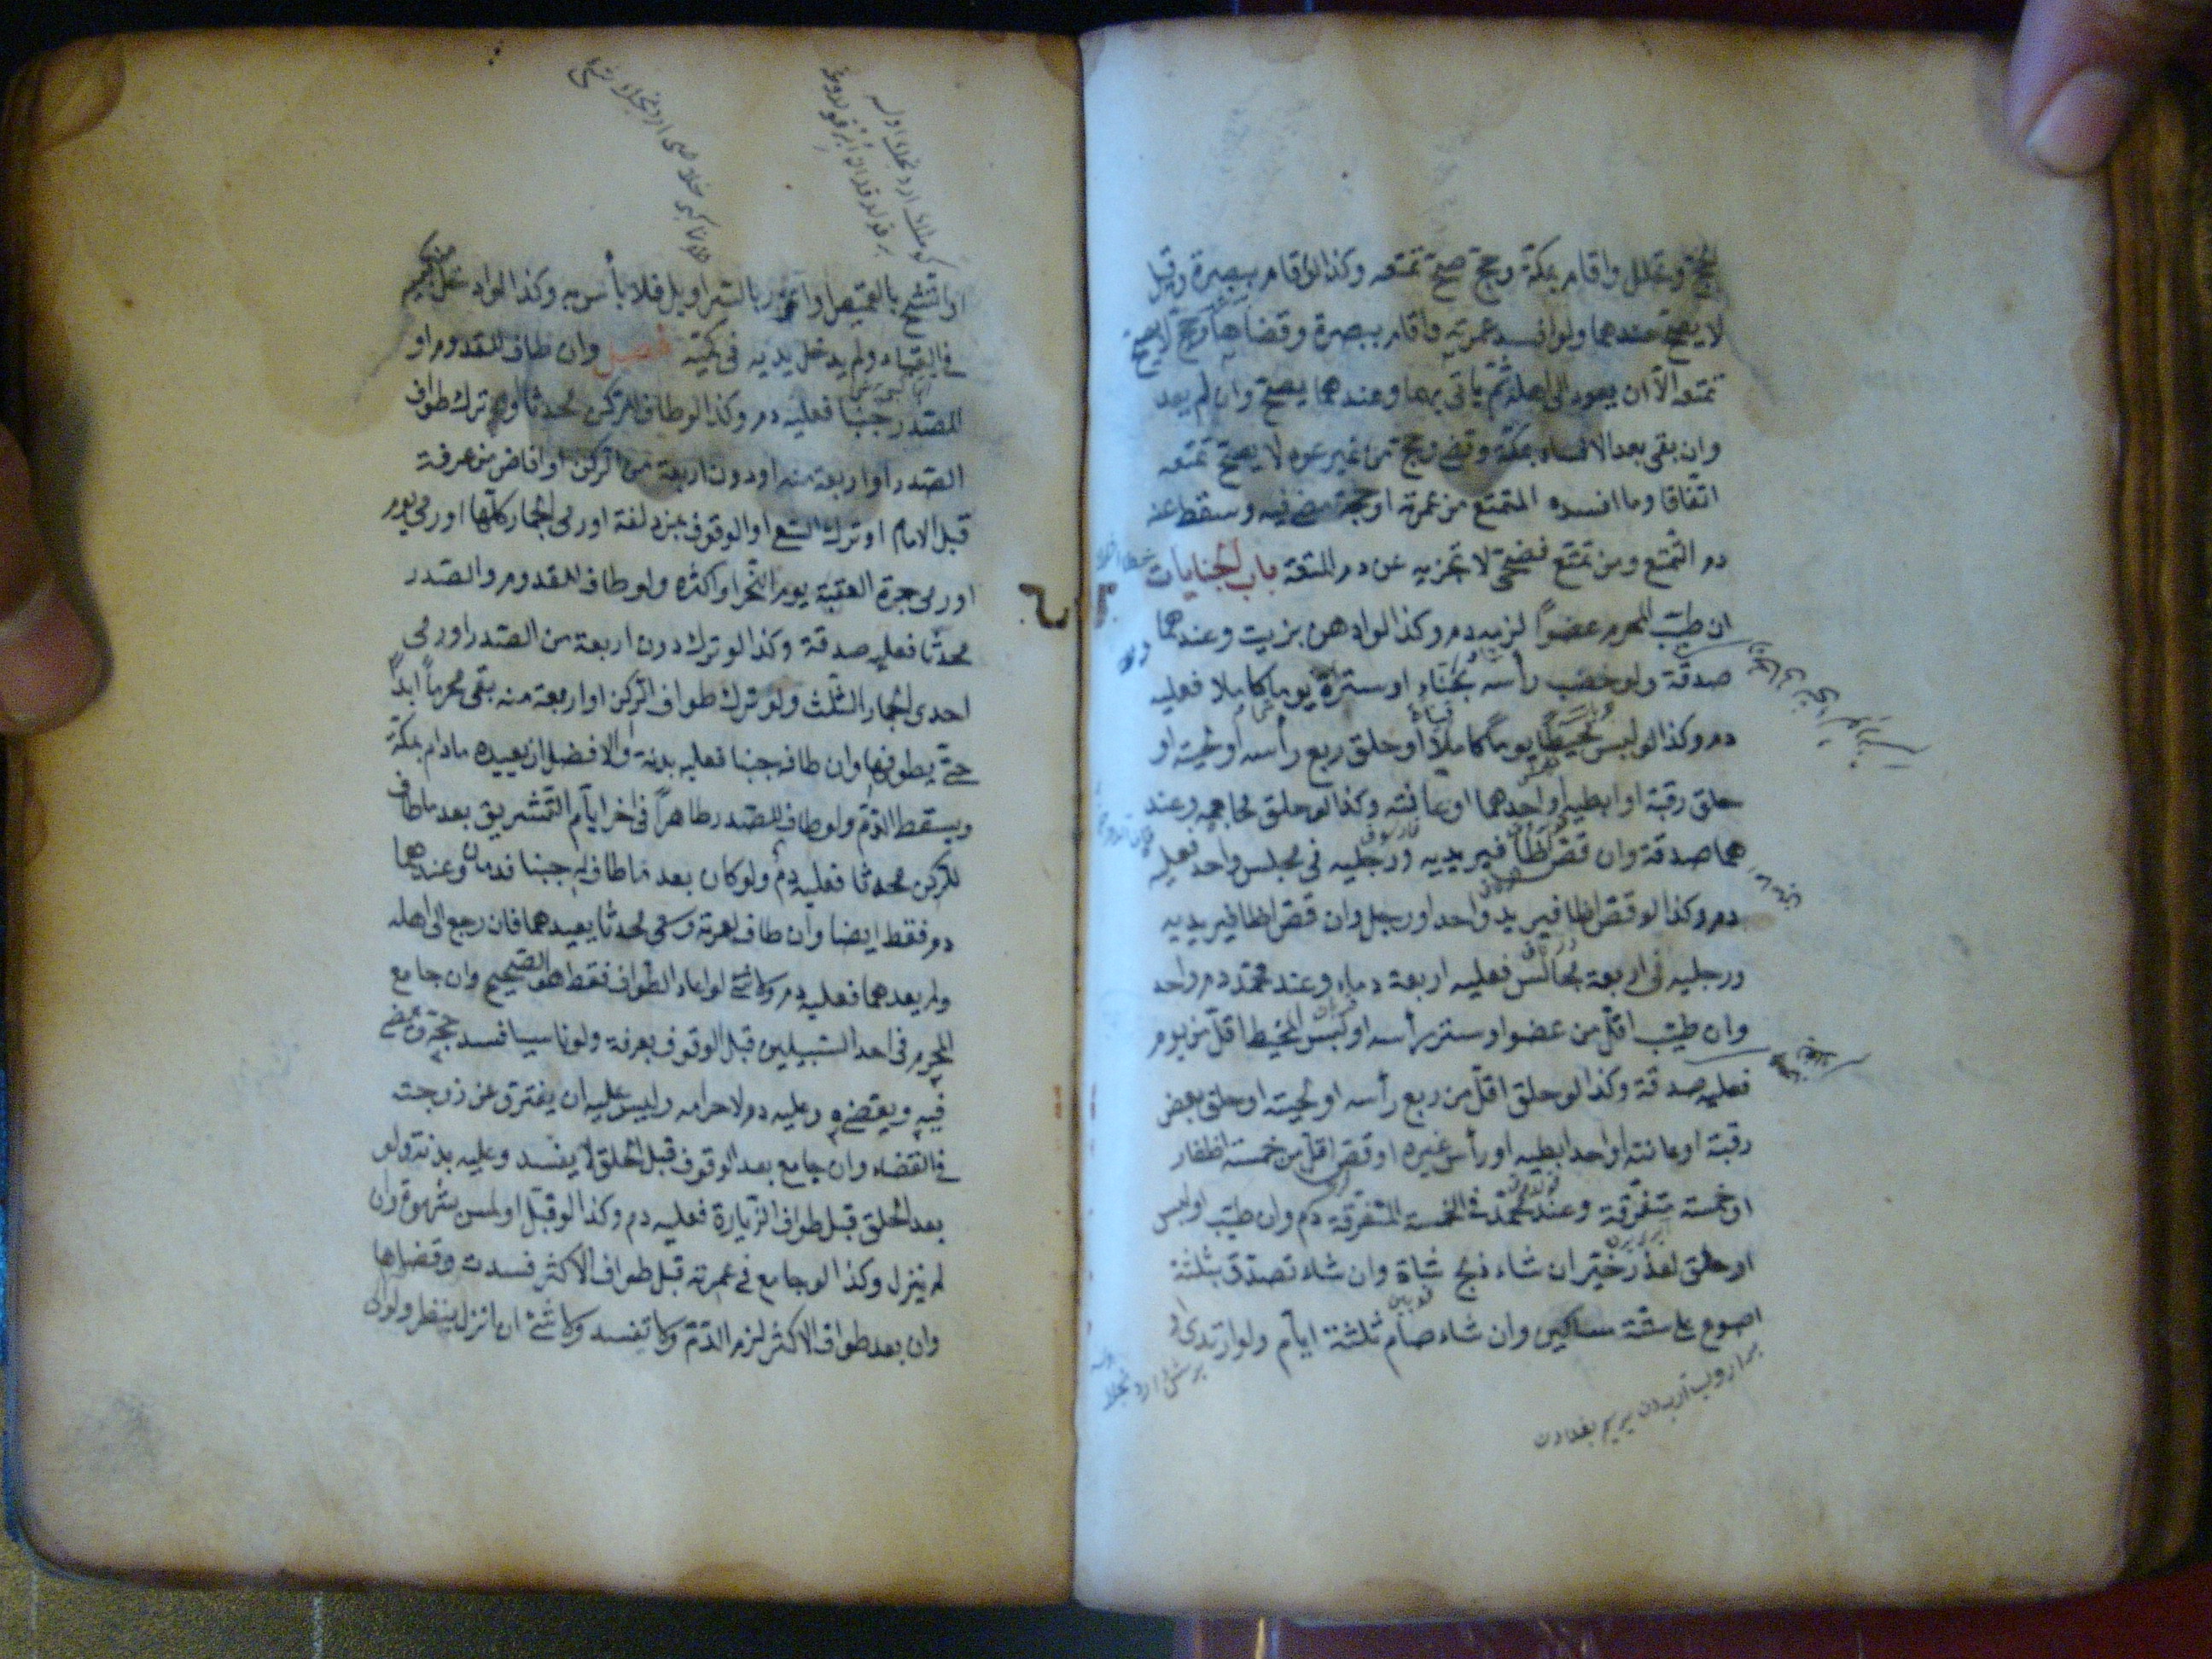 الحج وتحلل واقام بمكة وحج صح تمتعه وكذا لو اقام ببصرة وقيل
لا يصح عندهما ولو افسد عمرته واقام ببصرة وقضاها وحج لا يصح
تمتعه الّا ان يعود الى اهله ثم يأتى بهما وعندهما يصح وان لم يعد
وان بقى بعد الافساد بمكة وقضى وحج من غير عوده لا يصح تمتعه
اتّفاقا وما افسده المتمتع من عمرته او حجه مضى فيه وسقط عنه
دم التّمتع ومن تمتع فضحى لا تجزيه عن دم المتعة باب الجنايات
ان طيّب المحرم عضوا لزمه دم وكذا لو ادهن بزيت وعندهما
صدقة ولو خضب رأسه بحنّاء او ستره يوما كاملا فعليه
دم وكذا لو لبس مخيطا يوما كاملا او حلق ربع رأسه او لحيته او
حلق رقبة او ابطيه او احدهما او عانته وكذا لو حلق محاجمه وعند
هما صدقة وان قصّ اظافير يديه ورجليه فى مجلس واحد فعليه
دم وكذا لو قصّ اظافير يد واحد او رجل وان قصّ اظافير يديه
ورجليه فى اربعة مجالس فعليه اربعة دماء وعند محمّد دم واحد
وان طيّب اقلّ من عضو او ستر رأسه او لبس المخيط اقلّ من يوم
فعليه صدقة وكذا لو حلق اقلّ من ربع رأسه او لحيته او حلق بعض
رقبة او عانته او احد ابطيه او رأس غيره او قصّ اقلّ من خمسة اظفار
او خمسة متفرّقة وعند محمّد فى الخمسة المتفرّقة دم وان طيّب او لبس
او حلق لعذر خيّر ان شاء ذبح شاة وان شاء تصدّق بثلثة
اصوع على ستّة مساكين وان شاء صام ثلثة ايّام ولو ارتدى
او اتّشح بالقميص او اتّزر بالسّراويل فلا بأس به وكذا لو ادخل منكبيه
فى القباء ولم يدخل يديه فى كميّه فصل وان طاف للقدوم او
للصّدر جنبا فعليه دم وكذا لو طاف للركن محدثا او ترك طواف
الصّدر او اربعة منه او دون اربعة من الرّكن او افاض من عرفة
قبل الامام او ترك السّعى او الوقوف بمزدلفة او رمى الجمار كلّها او رمى يوم
او رمى جمرة العقبة يوم النّحر او اكثره ولو طاف للقدوم والصّدر
محدثا فعليه صدقة وكذا لو ترك دون اربعة من الصّدر او رمى
احدى الجمار الثّلث ولو ترك طواف الرّكن او اربعة منه بقى محرماً ابداً
حتّى يطوفها وان طافه جنبا فعليه بدنة والافضل ان يعيده مادام بمكّة
ويسقط الدّم ولو طاف للصّدر طاهراً فى اخر ايّام التّشريق بعد ما طاف
للرّكن محدثا فعليه دم ولو كان بعد ما طاف له جنبا فدمان وعندهما
دم فقط ايضا وان طاف لعمرته وسعى محدثا يعيدهما فان رجع الى اهله
ولم يعدهما فعليه دم ولا شئ لو اعاد الطّواف فقط هو الصّحيح وان جامع
المحرم فى احد السّبيلين قبل الوقوف بعرفة ولو ناسيا فسد حجّه ويمضى
فيه ويقضيه وعليه دم لاحرامه وليس عليه ان يفترق عن زوجته
فى القضاء وان جامع بعد الوقوف قبل الحلق لا يفسد وعليه بدنة ولو
بعد الحلق قبل طواف الزّيارة فعليه دم وكذا لو قبّل او لمس بشهوة وان
لم ينزل وكذا لو جامع فى عمرته قبل طواف الاكثر فسدت وقضاها
وان بعد طواف الاكثر لزم الدّم ولا تفسد ولا شئ ان انزل بنظر ولو الى